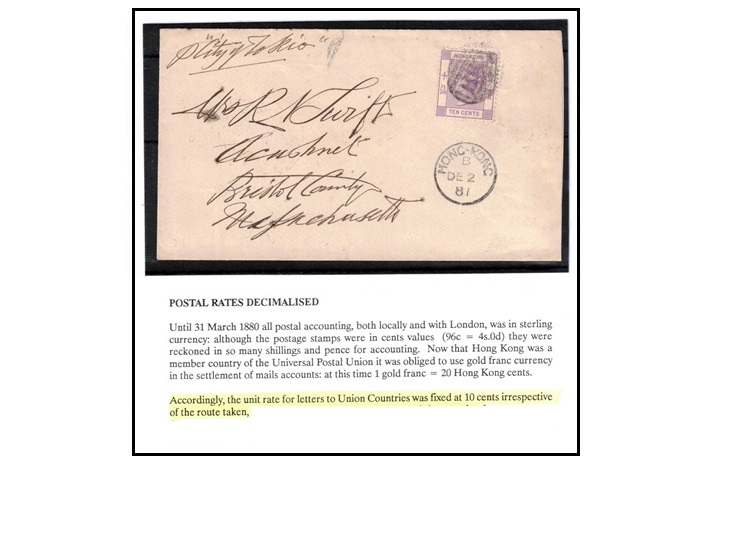 p "City of Tokio"
HONG KONG
TEN CENTS
Mrs R N Swift
Acushnet
Bristol County
Massachusetts
HONG-KONG
B
DE 2
81
POSTAL RATES DECIMALISED
Until 31 March 1880 all postal accounting, both locally and with London, was in sterling
currency: although the postage stamps were in cents values (96c = 4s.0d) they were
reckoned in so many shillings and pence for accounting. Now that Hong Kong was a
member country of the Universal Postal Union it was obliged to use gold franc currency
in the settlement of mails accounts: at this time 1 gold franc = 20 Hong Kong cents.
Accordingly, the unit rate for letters to Union Countries was fixed at 10 cents irrespective
of the route taken,